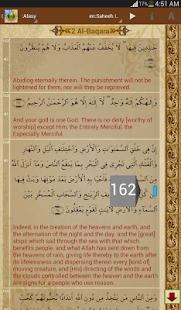 4:51 AM
Afasy
en:Saheeh I...
A
2 Al-Baqara
خَٰلِدِينَ فِيهَا لَا يُخَفَّفُ عَنْهُمُ الْعَذَابُ وَلَا هُمْ يُنظَرُونَ
Abiding eternally therein. The punishment will not be
lightened for them, nor will they be reprieved.
وَإِلَٰهُكُمْ إِلَٰهٌ وَاحِدٌ لَّا إِلَٰهَ إِلَّا هُوَ الرَّحْمَٰنُ الرَّحِيمُ
And your god is one God. There is no deity [worthy
of worship] except Him, the Entirely Merciful, the
Especially Merciful.
إِنَّ فِي خَلْقِ السَّمَاوَاتِ وَالْأَرْضِ
162
Indeed, in the creation of the heavens and earth,
and the alternation of the night and the day, and the [great]
ships which sail through the sea with that which
benefits people, and what Allah has sent down from
the heavens of rain, giving life thereby to the earth after
its lifelessness and dispersing therein every [kind of]
moving creature, and [His] directing of the winds and
the clouds controlled between the heaven and the earth
are signs for a people who use reason.
وَمِنَ النَّاسِ مَن يَتَّخِذُ مِن دُونِ اللَّهِ أَندَادًا يُحِبُّونَهُمْ كَحُبِّ